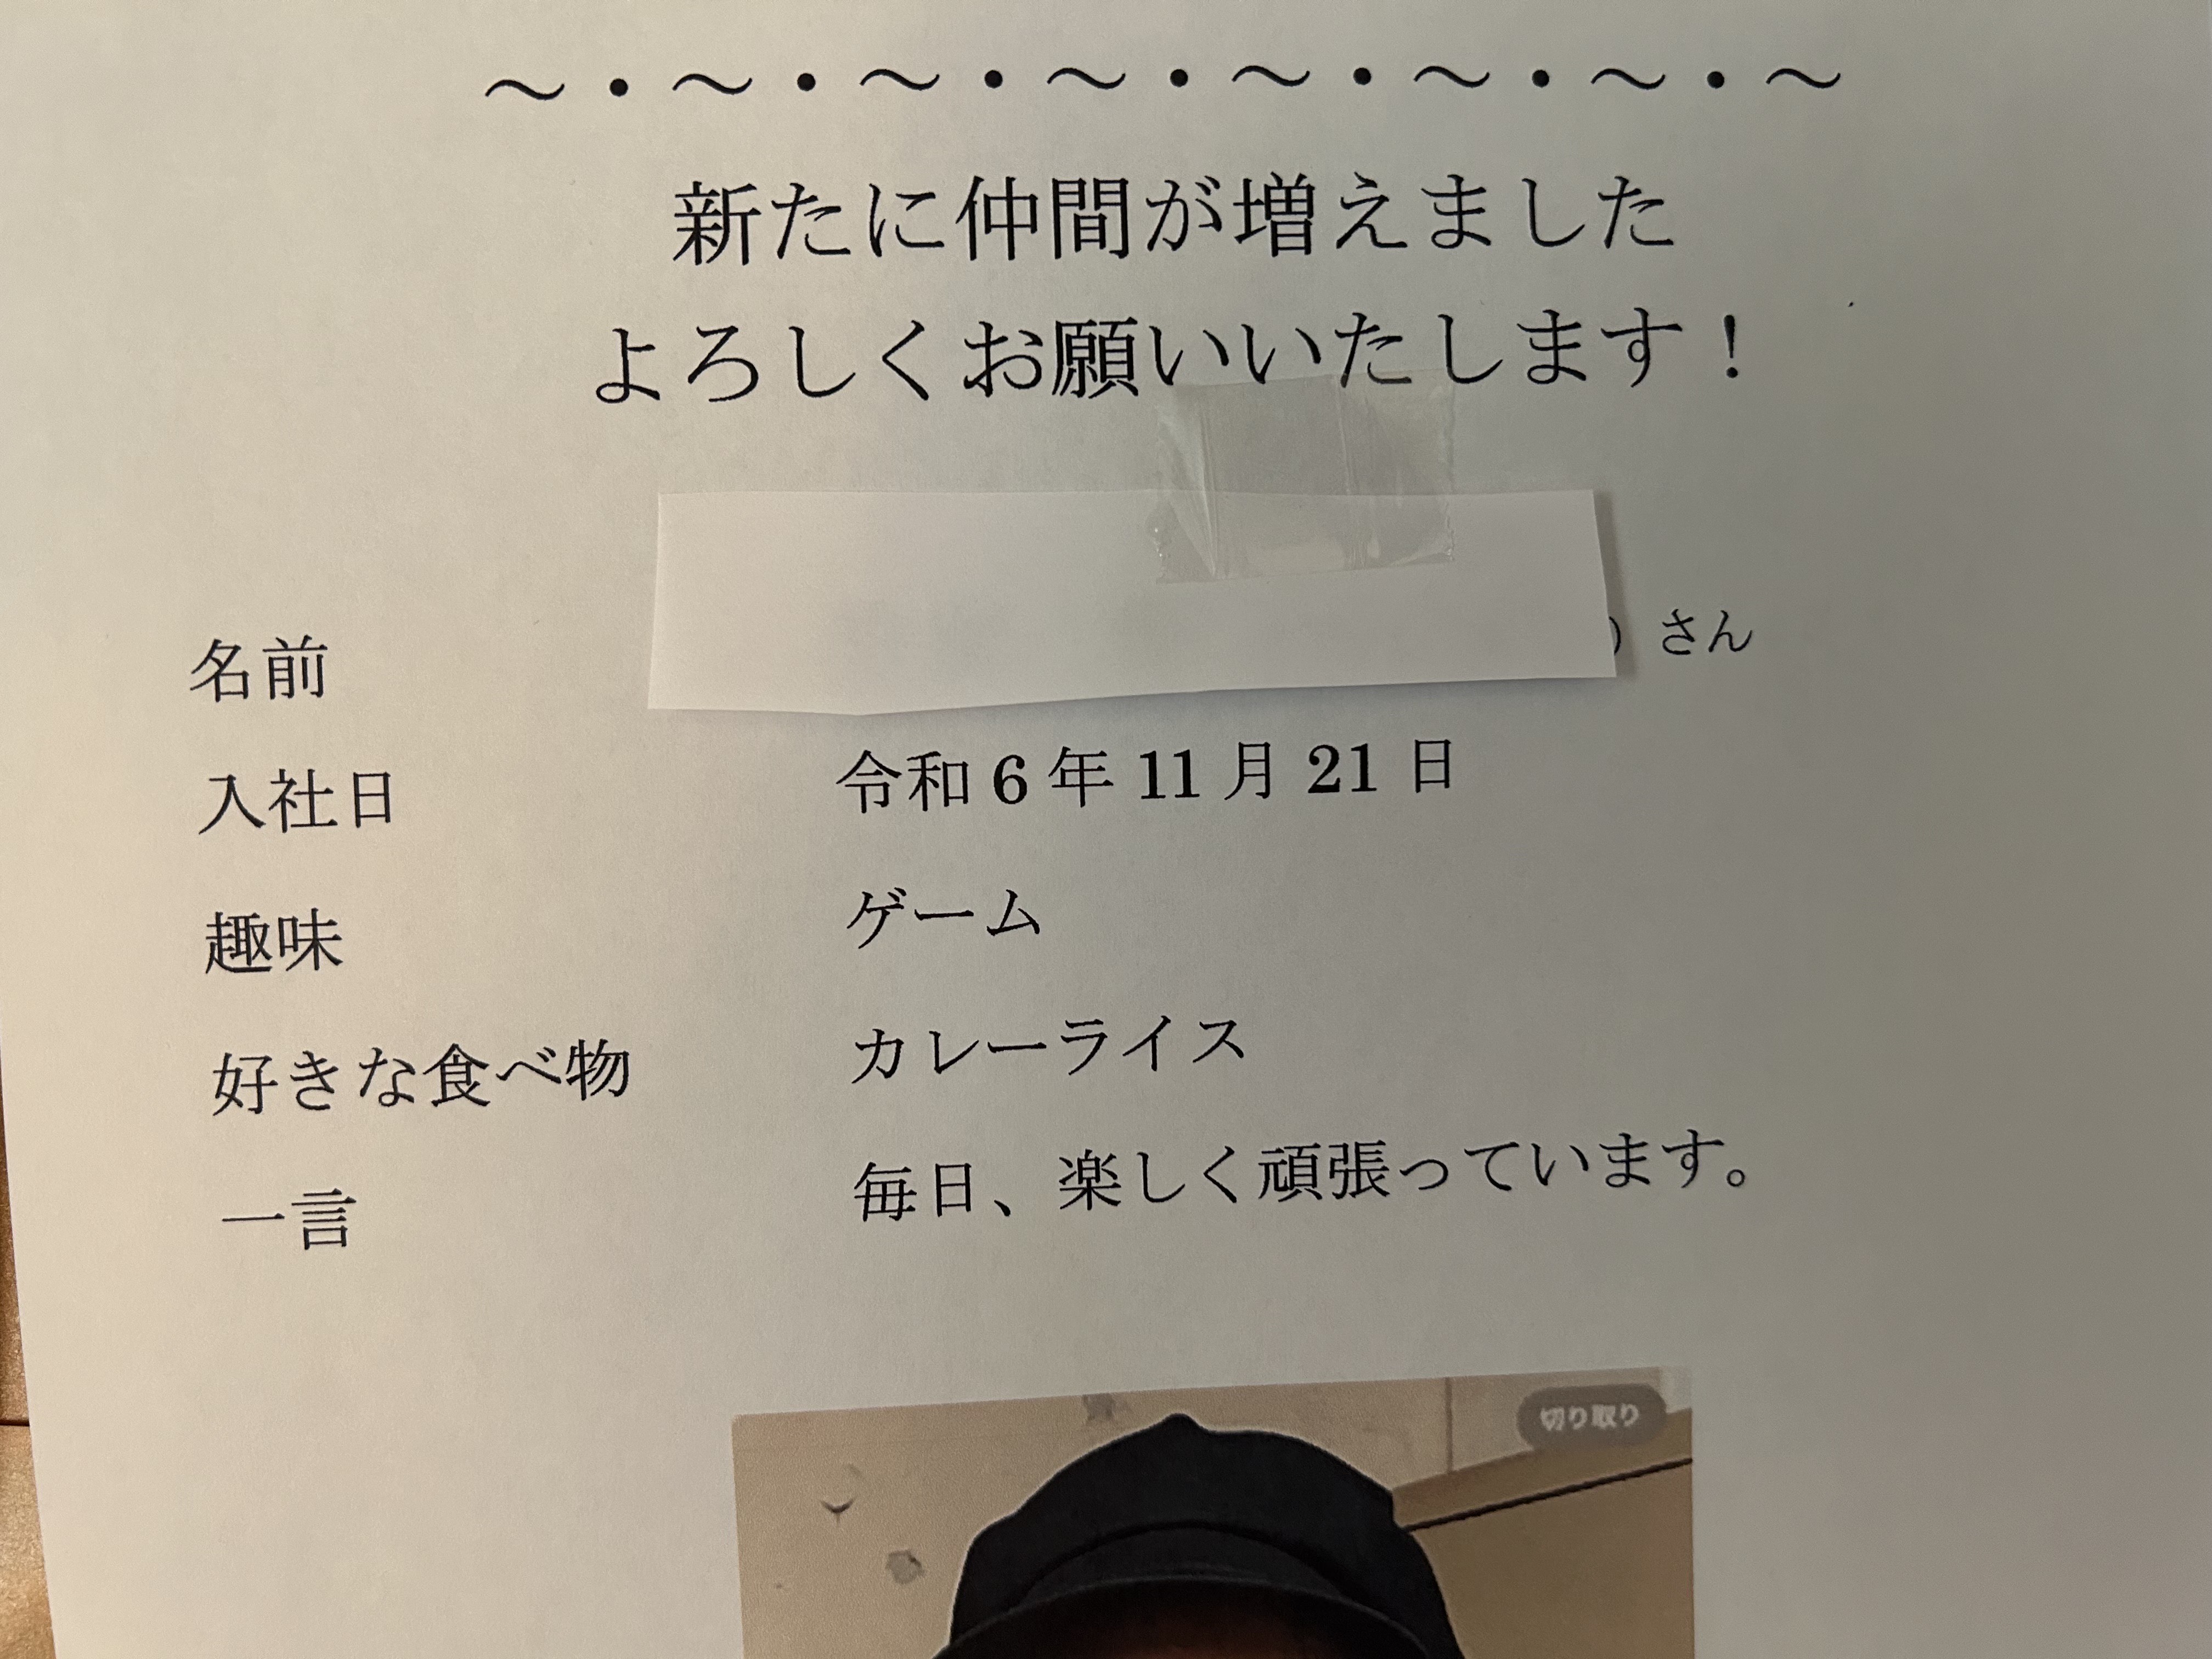 ～・～・～・～・～・～・～・～
新たに仲間が増えました
よろしくお願いいたします！
名前 ）さん
入社日 令和6年11月21日
趣味 ゲーム
好きな食べ物 カレーライス
一言 毎日、楽しく頑張っています。
切り取り